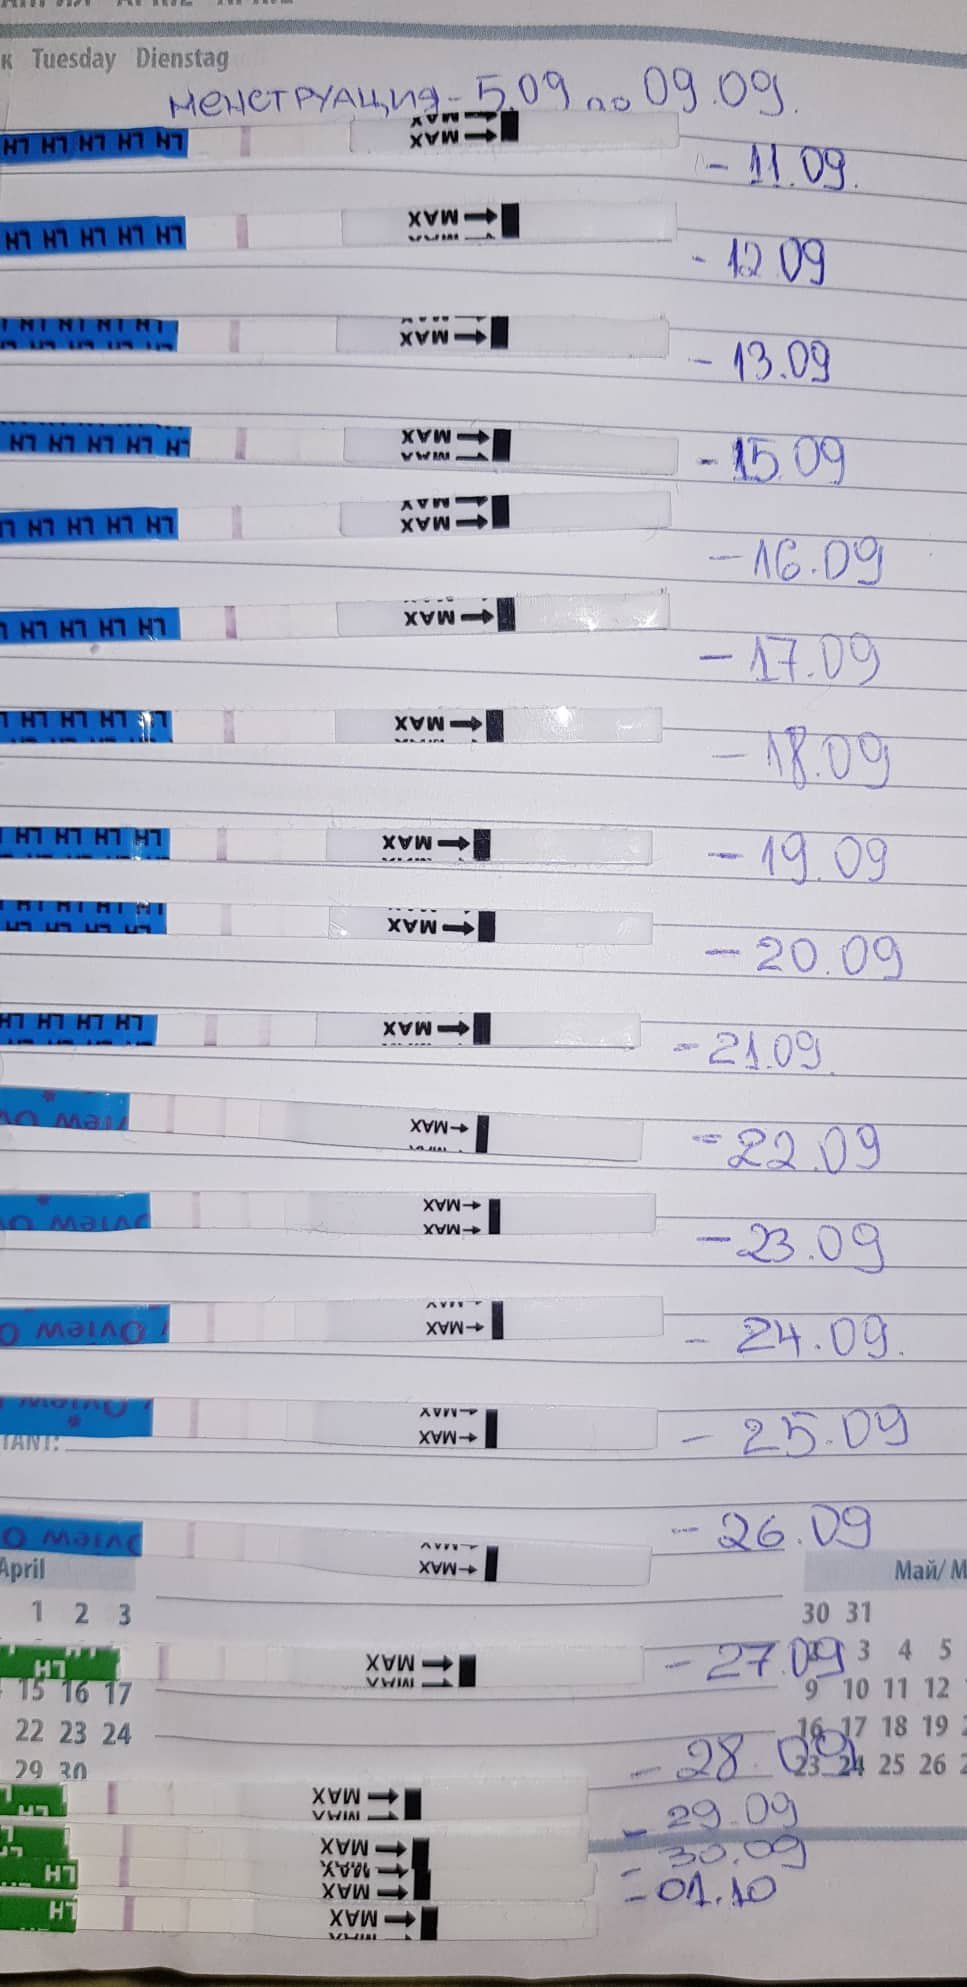 к Tuesday Dienstag
менструация - 5.09 по 09.09.
LH LH LH LH LH MAX MAX
- 11.09.
LH LH LH LH LH MAX
- 12.09
LH LH LH LH MAX
- 13.09
LH LH LH LH LH MAX
- 15.09
LH LH LH LH MAX MAX
- 16.09
LH LH LH LH MAX
- 17.09
LH LH LH LH MAX
- 18.09
LH LH LH LH MAX
- 19.09
LH LH LH LH MAX
- 20.09
LH LH LH LH MAX
- 21.09.
view Ov MAX
- 22.09
Oview O MAX MAX
- 23.09
Oview O MAX
- 24.09.
Oview MAX MAX
TANT:
- 25.09
Oview O MAX
- 26.09
April Май/ M
1 2 3 30 31
LH MAX - 27.09 3 4 5
15 16 17 9 10 11 12
22 23 24 16 17 18 19
- 28.09
29 30 23 24 25 26
MAX
- 29.09
MAX
- 30.09
LH MAX MAX
- 01.10
LH MAX